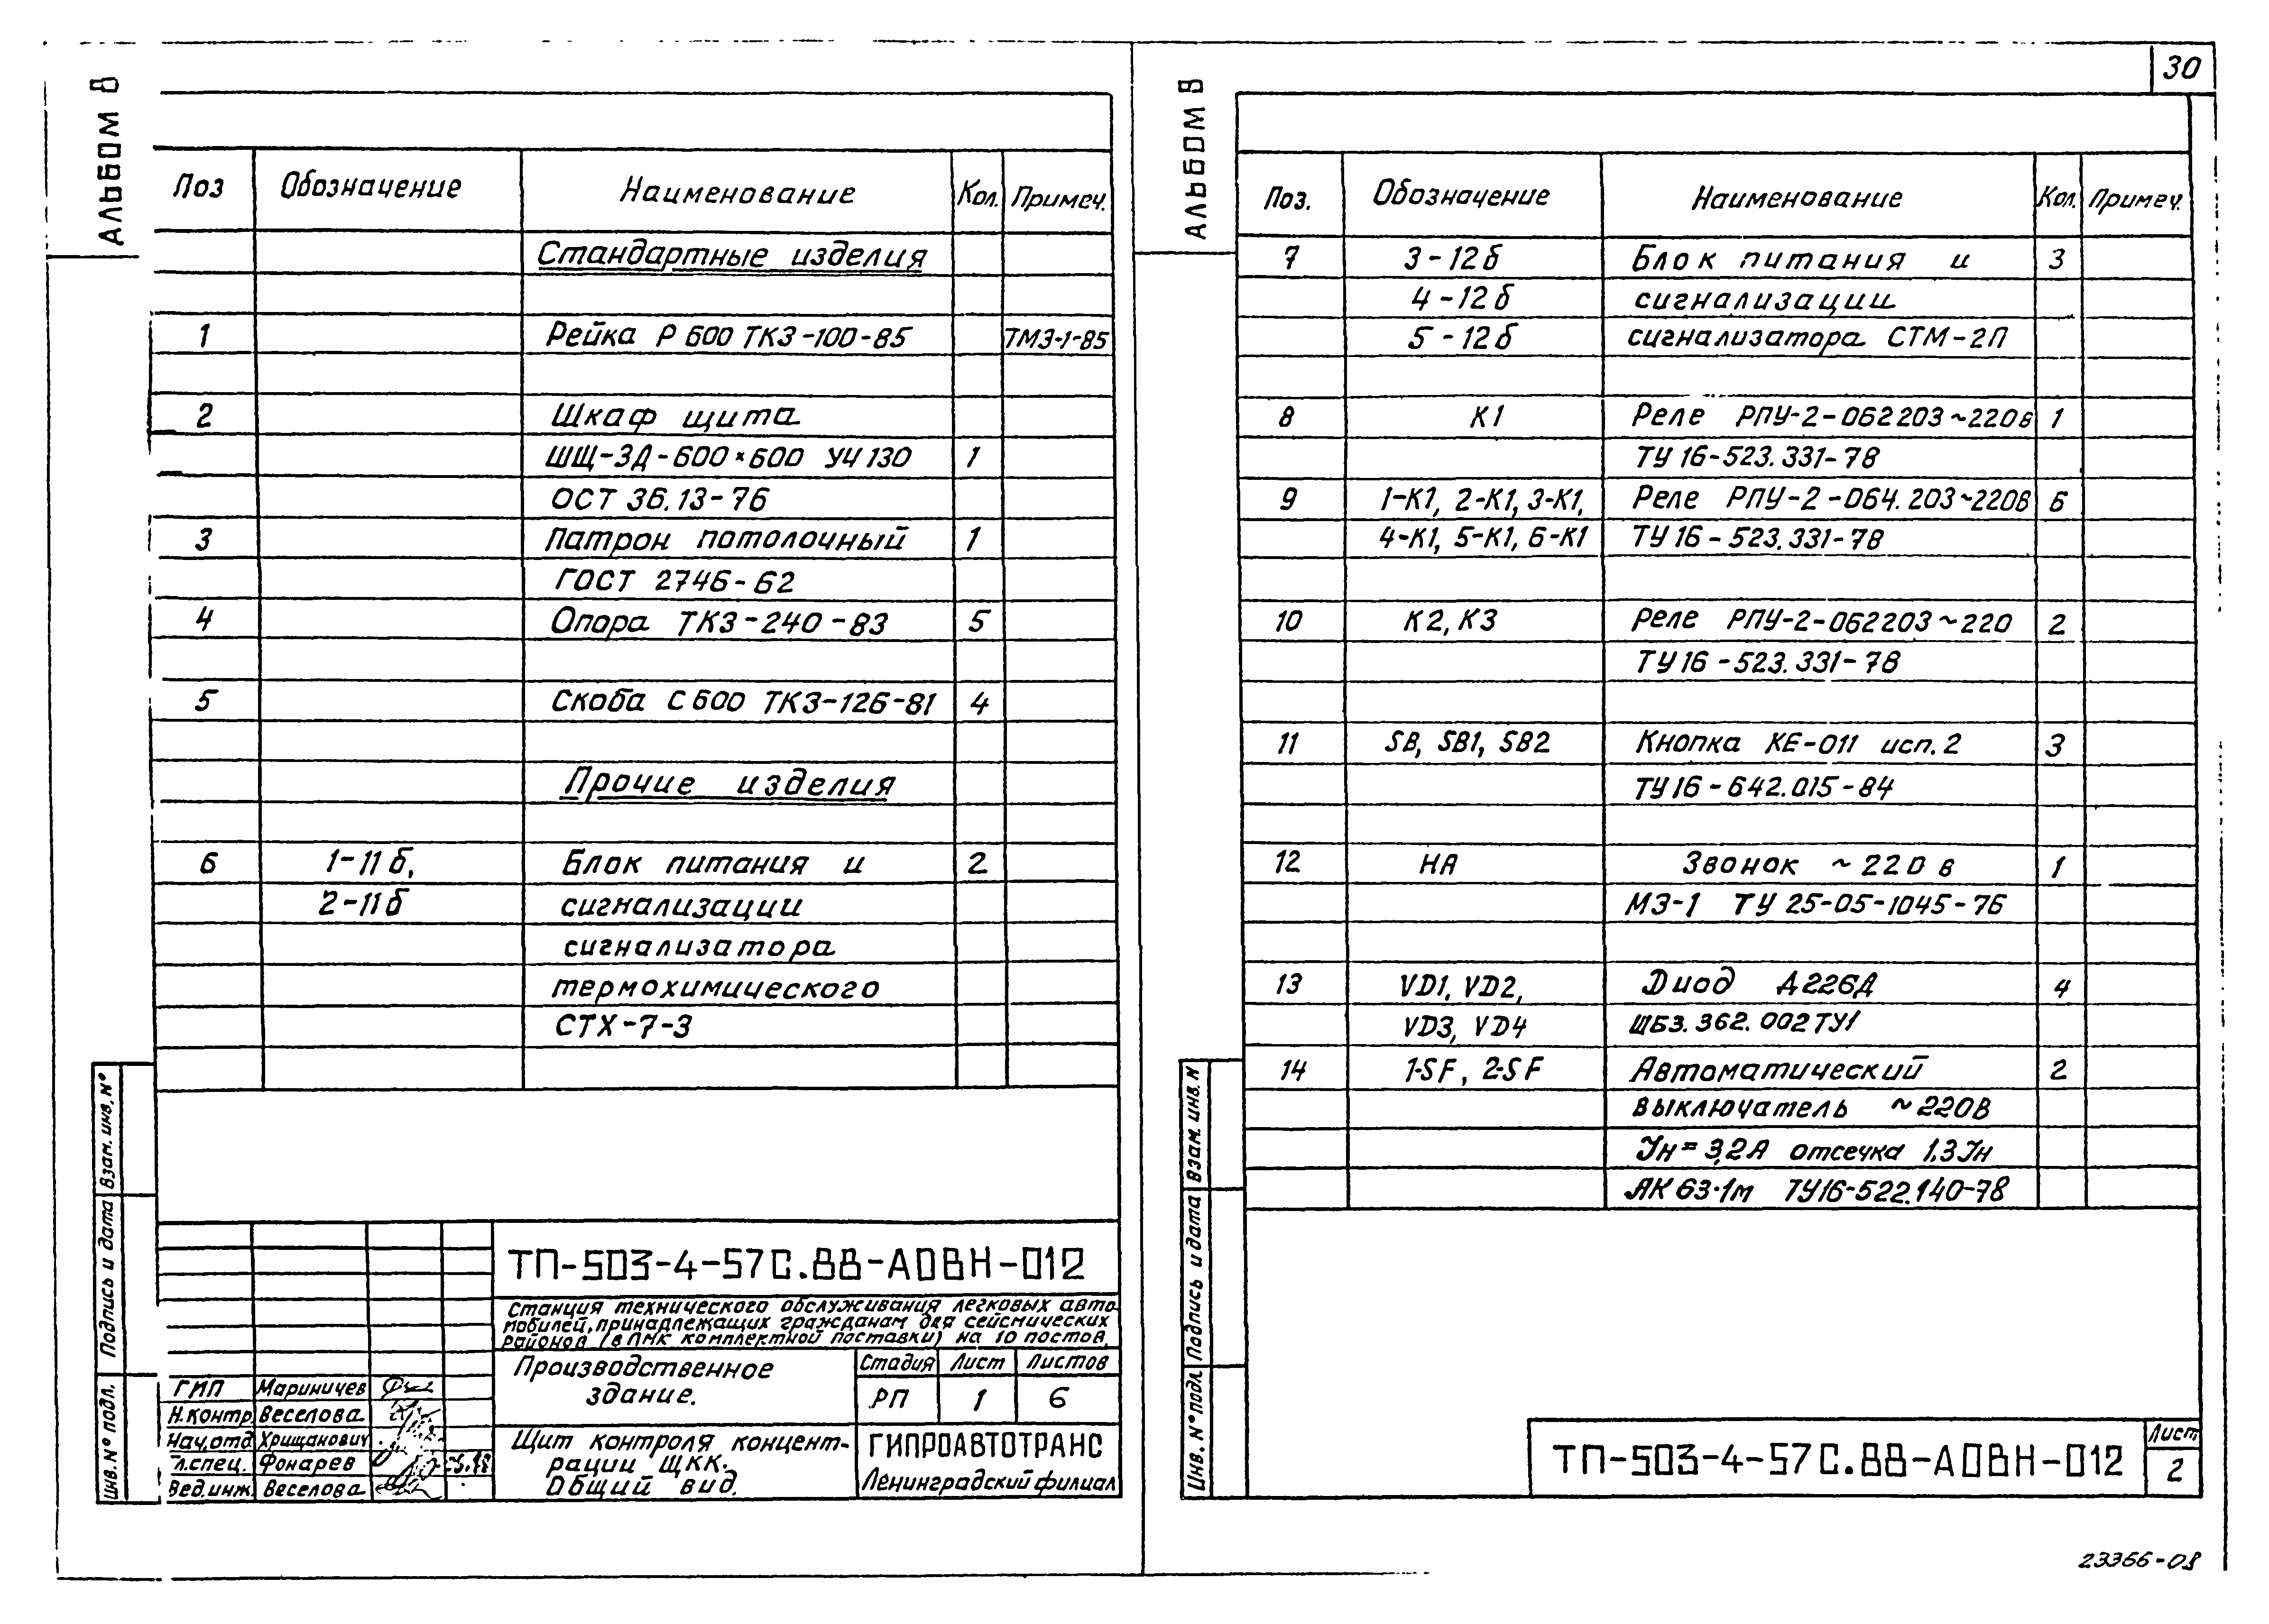 АЛЬБОМ 8
Поз Обозначение Наименование Кол. Примеч.
Стандартные изделия
1 Рейка Р 600 ТК3-100-85 ТМ3-1-85
2 Шкаф щита
ШЩ-ЗД-600×600 УЧ 130 1
ОСТ 36.13-76
3 Патрон потолочный 1
ГОСТ 2746-62
4 Опора ТК3-240-83 5
5 Скоба С 600 ТК3-126-81 4
Прочие изделия
6 1-11б, Блок питания и 2
2-11б сигнализации
сигнализатора
термохимического
СТХ-7-3
Взам. инв. №
Подпись и дата
Инв. № подл.
ТП-503-4-57С.88-АОВН-012
Станция технического обслуживания легковых авто
мобилей, принадлежащих гражданам для сейсмических
районов (в ЛМК комплектной поставки) на 10 постов.
Производственное
здание.
Стадия Лист Листов
РП 1 6
ГИП Мариничев
Н.контр Веселова
Нач.отд Хрищанович
Гл.спец. Фонарев
Вед.инж. Веселова
Щит контроля концент-
рации ЩКК.
Общий вид.
ГИПРОАВТОТРАНС
Ленинградский филиал
30
АЛЬБОМ 8
Поз. Обозначение Наименование Кол. Примеч.
7 3-12б Блок питания и 3
4-12б сигнализации
5-12б сигнализатора СТМ-2П
8 К1 Реле РПУ-2-062203~220в 1
ТУ 16-523.331-78
9 1-К1, 2-К1, 3-К1, Реле РПУ-2-064.203~220В 6
4-К1, 5-К1, 6-К1 ТУ 16-523.331-78
10 К2, К3 Реле РПУ-2-062203~220 2
ТУ 16-523.331-78
11 SB, SB1, SB2 Кнопка КЕ-011 исп. 2 3
ТУ 16-642.015-84
12 НА Звонок ~220 в 1
МЗ-1 ТУ 25-05-1045-76
13 VD1, VD2, Диод Д226Д 4
VD3, VD4 ЩБ3.362.002ТУ1
14 1-SF, 2-SF Автоматический 2
выключатель ~220В
Jн=3,2А отсечка 1.3Jн
АК 63-1м ТУ16-522.140-78
Взам. инв. N
Подпись и дата
Инв. № подл.
ТП-503-4-57С.88-АОВН-012
Лист
2
23366-08